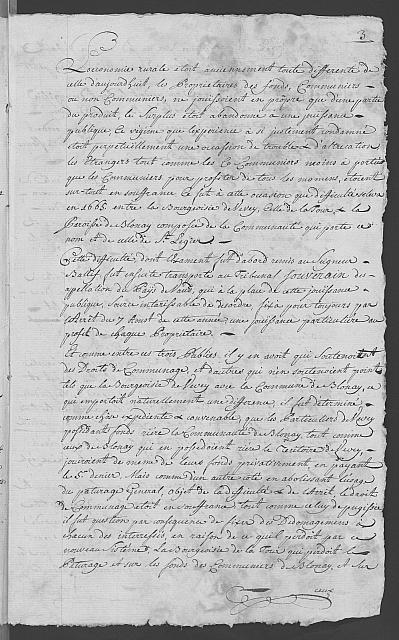 3
L'oeconomie rurale etoit anciennement toute differente de
celle d'aujourd'huit, les Proprietaires des fonds, Communiers
ou non Communiers, ne jouissoient en propre que d'une partie
du produit, le Surplus étoit abandonné à une puissance
publique, Ce régime que l'expérience a si justement condamné
étoit perpetuellement une occasion de trouble & d'
les Etrangers tout comme les Co-Communiers moins à portée
que les Communiers pour profiter de tous les momens, étoient
sur-tout en souffrance Ce fut à cette occasion que difficulté
en 1665. entre la Bourgeoisie de Vevey, Celle de la Tour & la
Paroisse de Blonay composée de la Communauté qui porte ce
nom et de celle de St. Légier
Cette difficulté dont le fut d'abord remis au Seigneur
Ballif, fut ensuite transporté au Tribunal Souverain des
appellations du Païs de Vaud, qui à la place de cette jouissance
publique, source intarissable de desordre, fixa pour toujours par
l'Arrêt du 7 Aoust de cette année, une jouissance particuliere au
profit de chaque Proprietaire.
Et comme entre ces trois Publics, il y en avoit qui Soutenoient
des Droits de Communage, et d'autres qui n'en soutenoient point
tels que la Bourgeoisie de Vevey avec la Commune de Blonay, ce
qui emportoit naturellement une difference, il fut déterminé
comme chose expédiente & convenable, que les Particuliers de Vevey
possedant fonds riere la Communauté de Blonay, tout comme
ceux de Blonay qui en possedoient riere le territoire de Vevey,
jouiroient de meme de leurs fonds privativement, en payant
le 5e. denier. Mais comme d'un autre coté en abolissant l'usage
du paturage General, objet de la difficulté & de l'Arrêt, le droit
de Communage étoit en Souffrance tout comme celuy de
il fut question par consequence de fixer des Dédomagemens à
chacun des interressés, en raison de ce qu'il perdoit par ce
nouveau Sistème, La Bourgeoisie de la Tour qui perdoit le
Paturage et sur les fonds des Communiers de Blonay, et sur
ceux